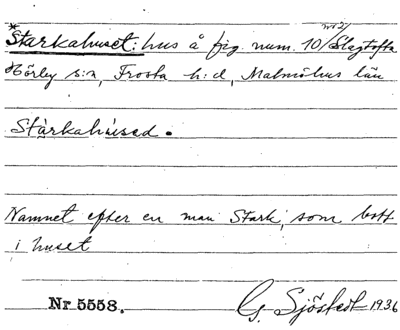 *Starkahuset: hus å fig. num. 10/ Slagtofta nr 2/
Hörby s:n, Frosta h:d, Malmöhus län
Stàrkahúsed.
Namnet efter en man Stark, som bott
i huset
Nr. 5558. G. Sjöstedt 1936